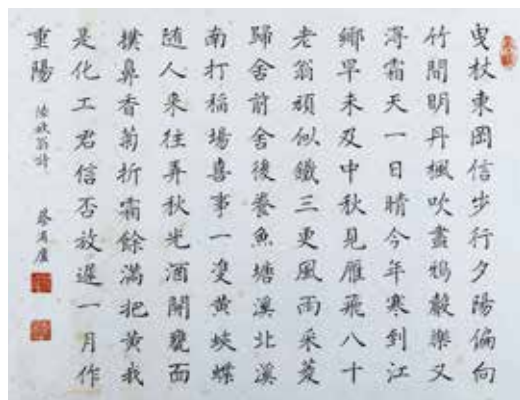 曳杖東岡信步行夕陽偏向
竹間明丹楓吹盡鴉聲樂又
淂霜天一日晴今年寒到江
鄉早未及中秋見雁飛八十
老翁頑似鐵三更風雨采菱
歸舍前舍後養魚塘溪北溪
南打稻場喜事一雙黃蛺蝶
随人来往弄秋光酒開甕面
撲鼻香菊折霜餘滿把黃我
是化工君信否放遲一月作
重陽 陸放翁詩